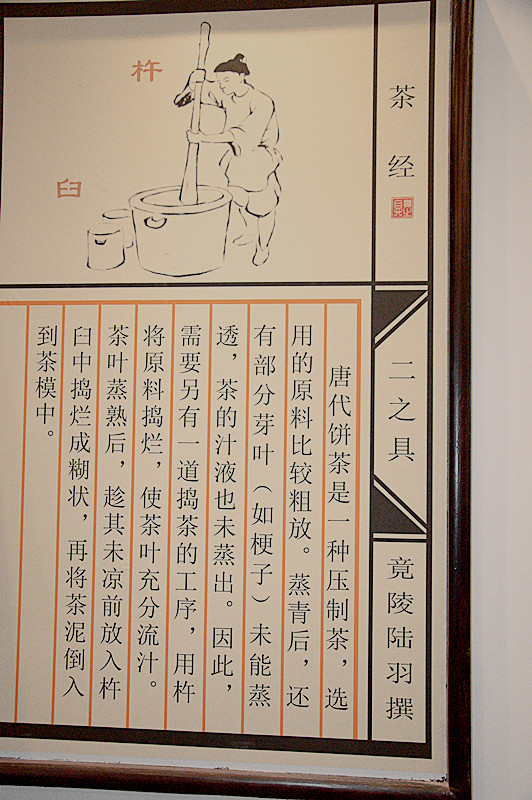 茶经
二之具
竟陵陆羽撰
杵
臼
唐代饼茶是一种压制茶，选
用的原料比较粗放。蒸青后，还
有部分芽叶（如梗子）未能蒸
透，茶的汁液也未蒸出。因此，
需要另有一道捣茶的工序，用杵
将原料捣烂，使茶叶充分流汁。
茶叶蒸熟后，趁其未凉前放入杵
臼中捣烂成糊状，再将茶泥倒入
到茶模中。